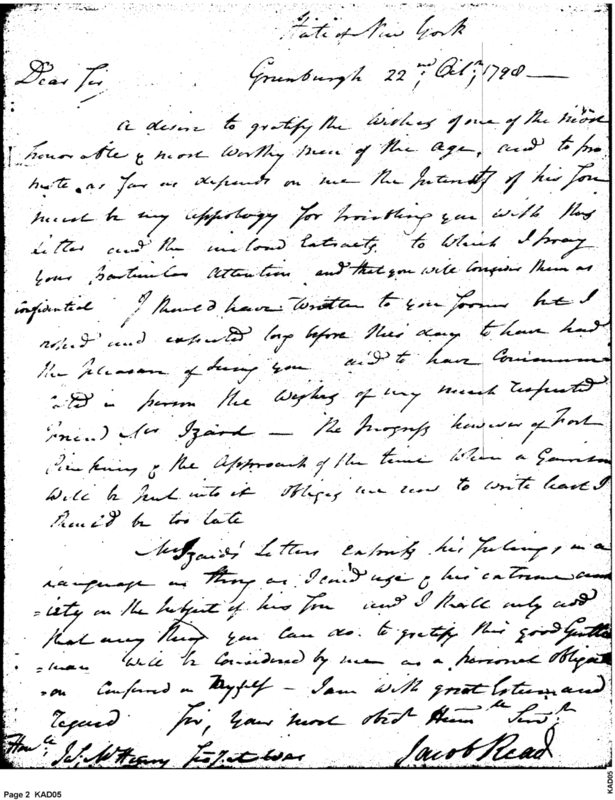 State of New York
Greenburgh 22nd Octr 1798 —
Dear Sir,
a desire to gratify the Wishes of one of the most
honorable & most worthy men of the age, and to pro
mote as far as depends on me the Interest of his Son
must be my appology for troubling you with this
Letter and the inclosed Extracts, to which I pray
your particular attention and that you will consider them as
confidential I should have written to you sooner but I
hoped and expected long before this day to have had
the pleasure of seeing you and to have Communi
cated in person the Wishes of my much respected
Friend Mr Izard — the Progress however of Fort
Pinckney & the Approach of the time when a Garrison
will be put into it obliges me now to write least I
shou'd be too late
Mr Izard's Letters express his feelings in a
Language as strong as I cou'd use & his extreme anx
=iety on the subject of his Son and I shall only add
that any thing you can do to gratify this good Gentle
=man will be considered by me as a personal obligati
=on conferred on Myself — I am with great Esteem and
regard Sir, Your most obedt Humble Servt
Jacob Read
Honble
Js McHenry Secy at War
Page 2 KAD05
KAD05